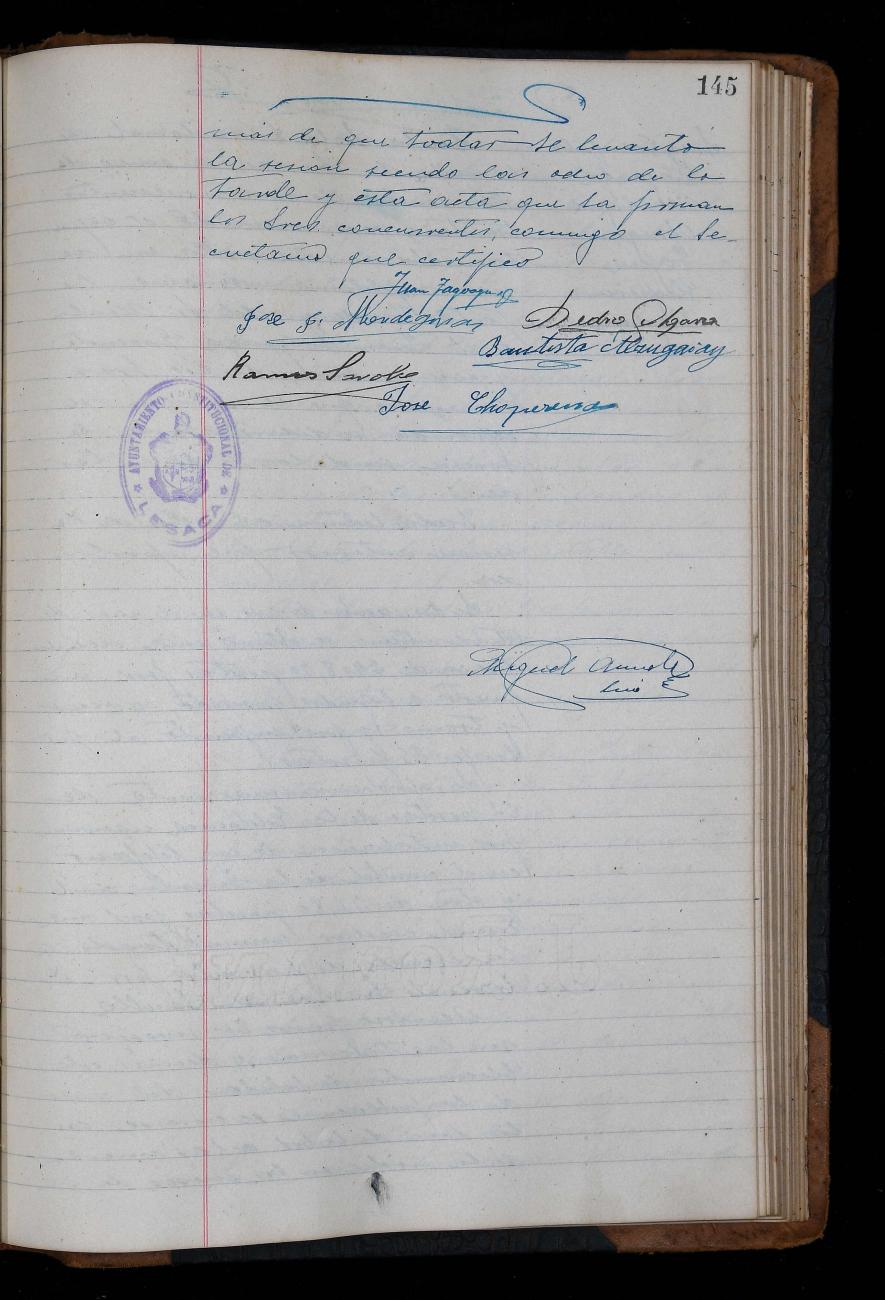 145
mas de que tratar se levantó
la sesion siendo las ocho de la
tarde y esta acta que la firman
los Sres. concurrentes, conmigo el Se-
cretario que certifico
Juan
Jose Mendegaray
Pedro
Bautista Alzugaray
Ramon
Jose Choperena
AYUNTAMIENTO CONSTITUCIONAL DE
LESACA
Miguel